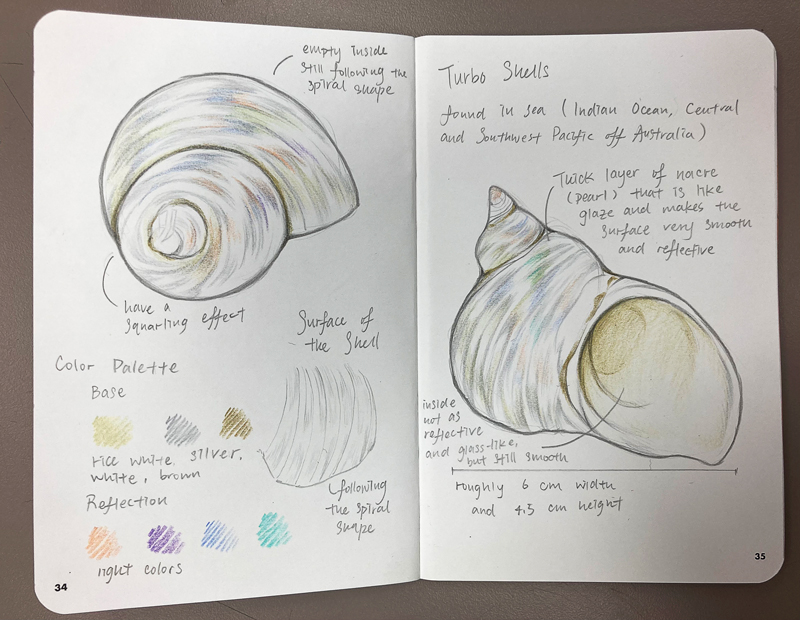 empty inside
still following the
spiral shape
have a
squarling effect
Surface of
the Shell
Color Palette
Base
rice white, silver,
white, brown
following
the spiral
shape
Reflection
light colors
34
Turbo Shells
found in sea (Indian Ocean, Central
and Southwest Pacific off Australia)
Thick layer of nacre
(pearl) that is like
glaze and makes the
surface very smooth
and reflective
inside
not as
reflective
and glass-like,
but still smooth
roughly 6 cm width
and 4.5 cm height
35